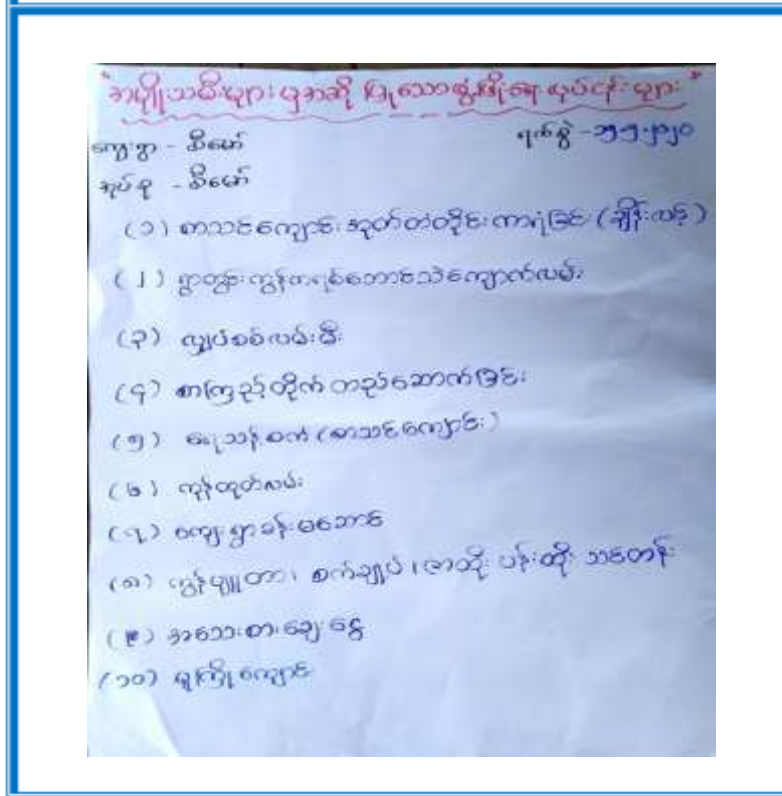 "အမျိုးသမီးများမှအဆိုပြုသောဖွံ့ဖြိုးရေးလုပ်ငန်းများ"
ကျေးရွာ - ဒီမော် ရက်စွဲ - ၁၅-၅-၂၀၂၀
အုပ်စု - ဒီမော်
(၁) စာသင်ကျောင်းအုတ်တံတိုင်းကာရံခြင်း (ချိန်းလင့်)
(၂) ရွာတွင်းကွန်ကရစ်ဘောင်သဲကျောက်လမ်း
(၃) လျှပ်စစ်လမ်းမီး
(၄) စာကြည့်တိုက်တည်ဆောက်ခြင်း
(၅) ရေသန့်စက် (စာသင်ကျောင်း)
(၆) ကုန်ထုတ်လမ်း
(၇) ကျေးရွာခန်းမဆောင်
(၈) ကွန်ပျူတာ၊ စက်ချုပ်၊ ဇာထိုး ပန်းထိုး သင်တန်း
(၉) အသေးစားချေးငွေ
(၁၀) မူကြိုကျောင်း